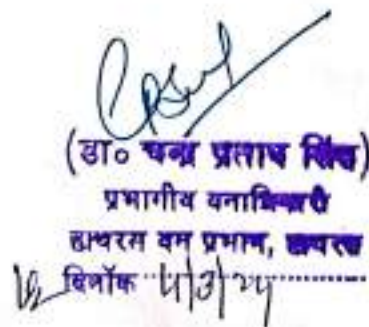 (डा० चन्द्र प्रताप सिंह)
प्रभागीय वनाधिकारी
हाथरस वन प्रभाग, हाथरस
दिनाँक 4/3/24